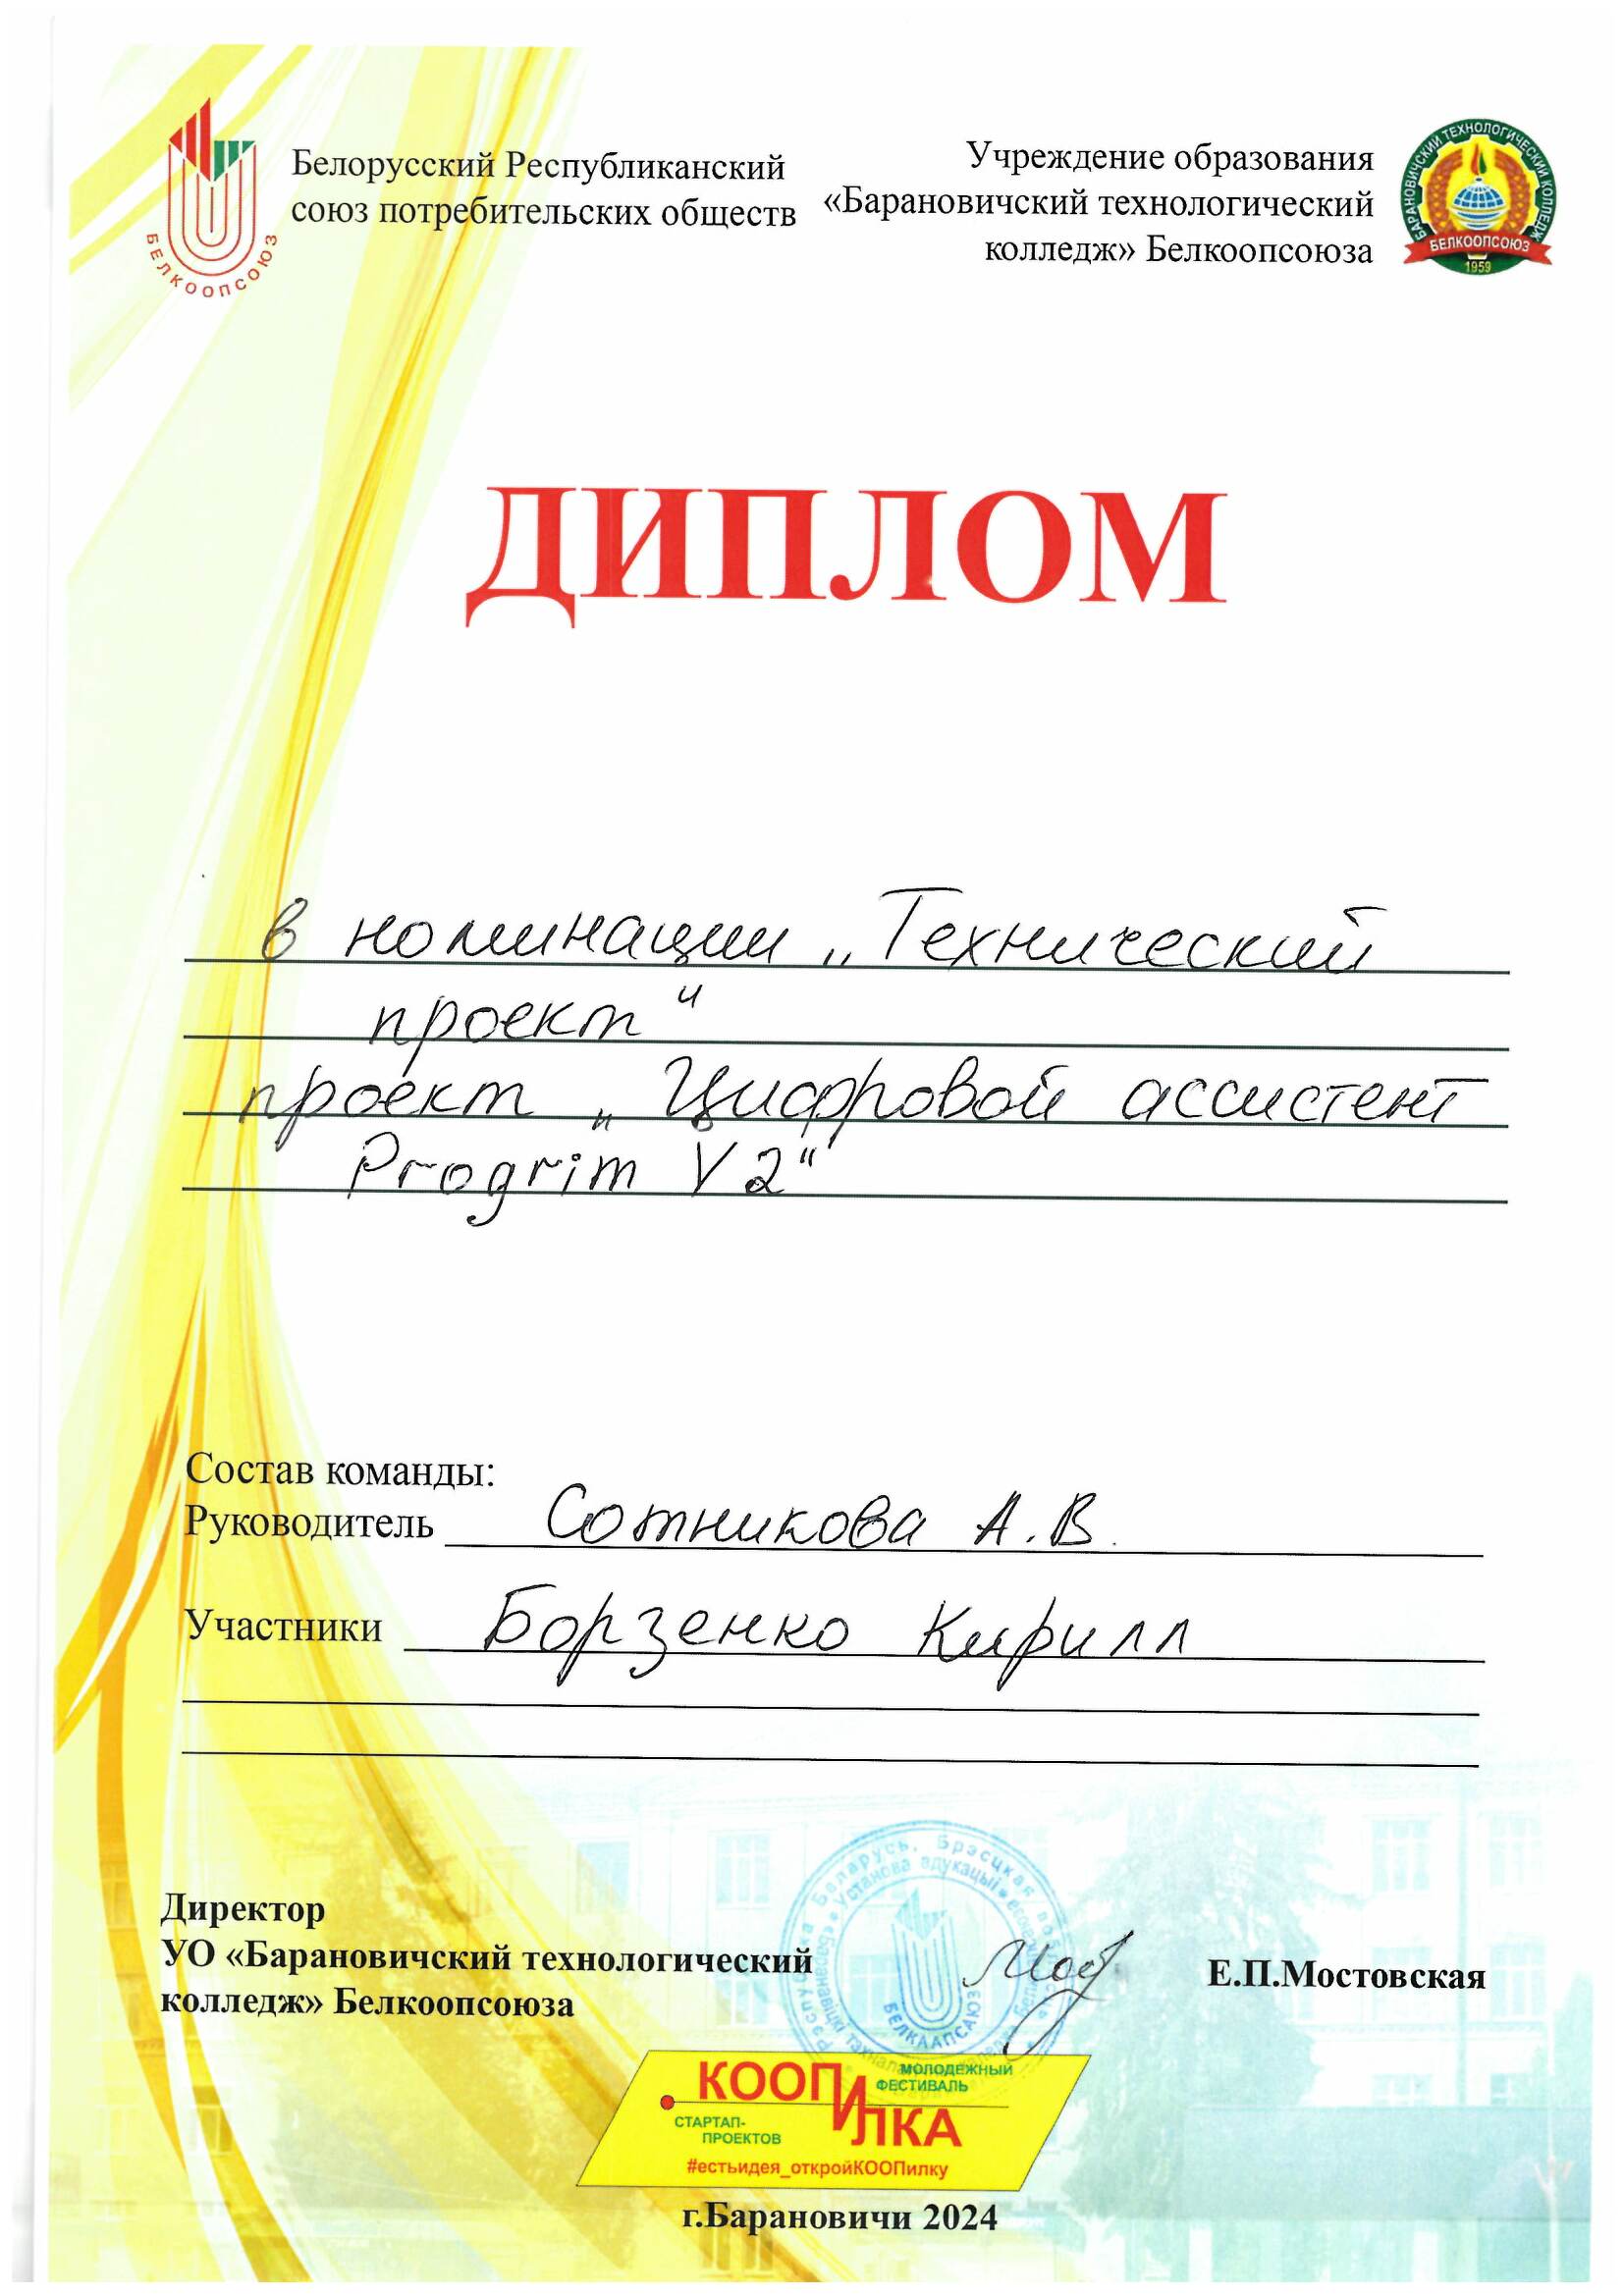 БЕЛКООПСОЮЗ
Белорусский Республиканский
союз потребительских обществ
Учреждение образования
«Барановичский технологический
колледж» Белкоопсоюза
БАРАНОВИЧСКИЙ ТЕХНОЛОГИЧЕСКИЙ КОЛЛЕДЖ
БЕЛКООПСОЮЗ
1959
ДИПЛОМ
в номинации „Технический
проект“
проект „Цифровой ассистент
Progrim V2“
Состав команды:
Руководитель Сотникова А.В.
Участники Борзенко Кирилл
Директор
УО «Барановичский технологический
колледж» Белкоопсоюза
Е.П.Мостовская
Рэспубліка Беларусь, Брэсцкая
Установа адукацыі
БЕЛКААПСАЮЗ
КООПИЛКА
МОЛОДЕЖНЫЙ
ФЕСТИВАЛЬ
СТАРТАП-
ПРОЕКТОВ
#естьидея_откройКООПилку
г.Барановичи 2024